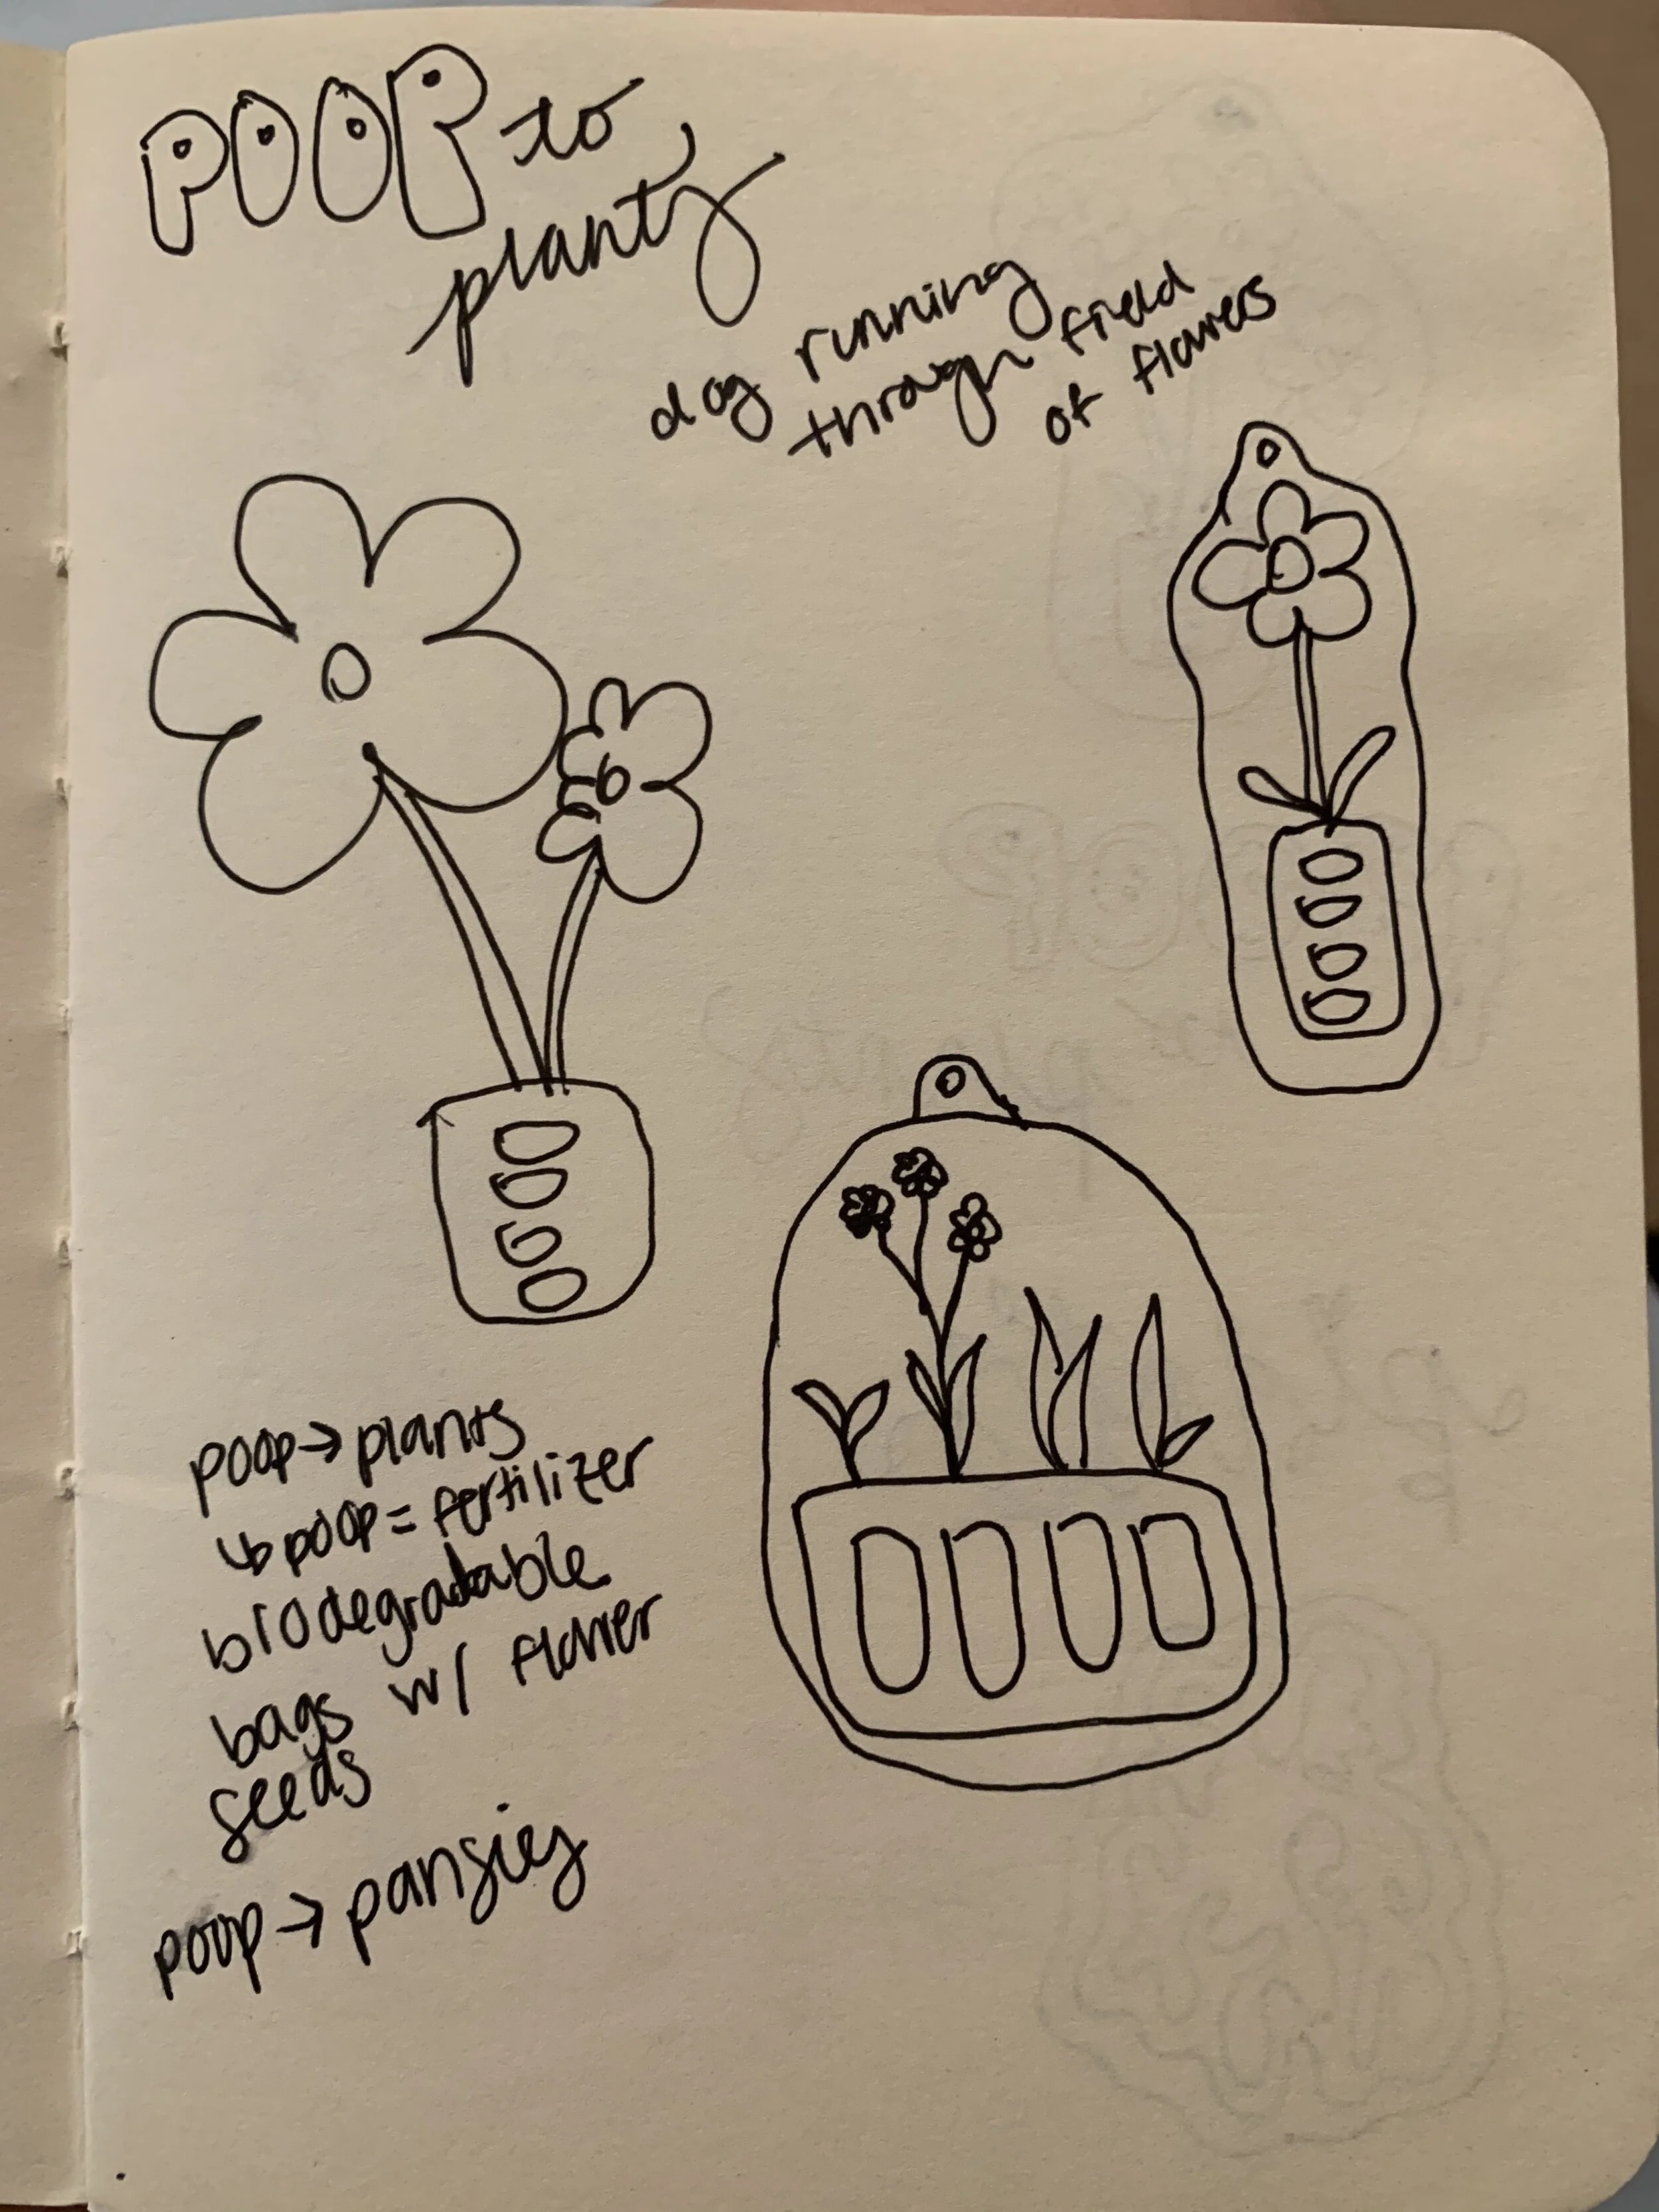 POOP to
plants
dog running
through field
of flowers
poop → plants
↳ poop = fertilizer
biodegradable
bags w/ flower
seeds
poop → pansies